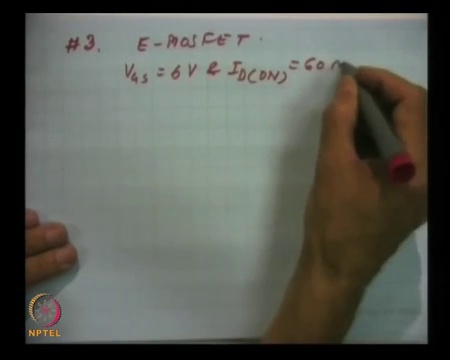 #3. E-MOSFET.
V_GS = 6 V & I_D(ON) = 60 m
NPTEL